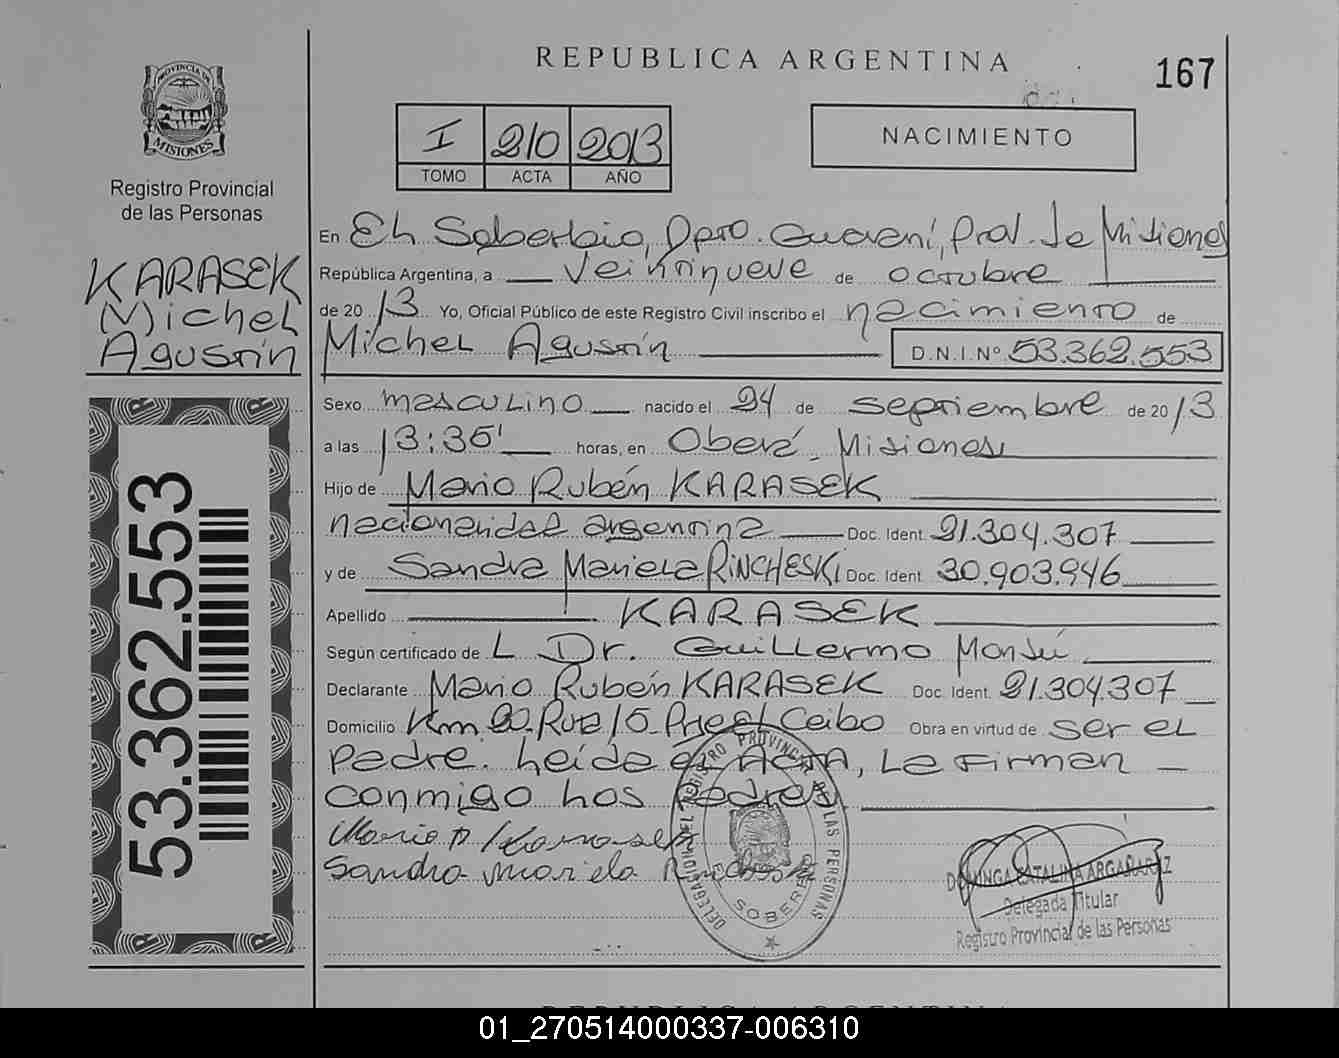 REPUBLICA ARGENTINA
167
PROVINCIA DE
MISIONES
Registro Provincial
de las Personas
I 210 2013
TOMO ACTA AÑO
NACIMIENTO
KARASEK
Michel
Agustín
53.362.553
En El Soberbio, Dpto. Guaraní, Prov. de Misiones
República Argentina, a veintinueve de octubre
de 2013 Yo, Oficial Público de este Registro Civil inscribo el nacimiento de
Michel Agustín D.N.I.Nº 53.362.553
Sexo masculino nacido el 24 de septiembre de 2013
a las 13:35' horas, en Oberá, Misiones
Hijo de Mario Rubén KARASEK
nacionalidad argentina Doc. Ident. 21.304.307
y de Sandra Mariela RINCHESKI Doc. Ident. 30.903.946
Apellido KARASEK
Según certificado de L Dr. Guillermo
Declarante Mario Rubén KARASEK Doc. Ident. 21.304.307
Domicilio Km. 20 Ruta 15 Pje el Ceibo Obra en virtud de ser el
Padre. Leída el Acta, la firman
conmigo los Padres
Mario R Karasek
Sandra Mariela
DELEGACION DEL REGISTRO PROVINCIAL DE LAS PERSONAS
SOBERBIO
DOMINGA CATALINA ARGAÑARAZ
Delegada Titular
Registro Provincial de las Personas
REPUBLICA ARGENTINA
01_270514000337-006310